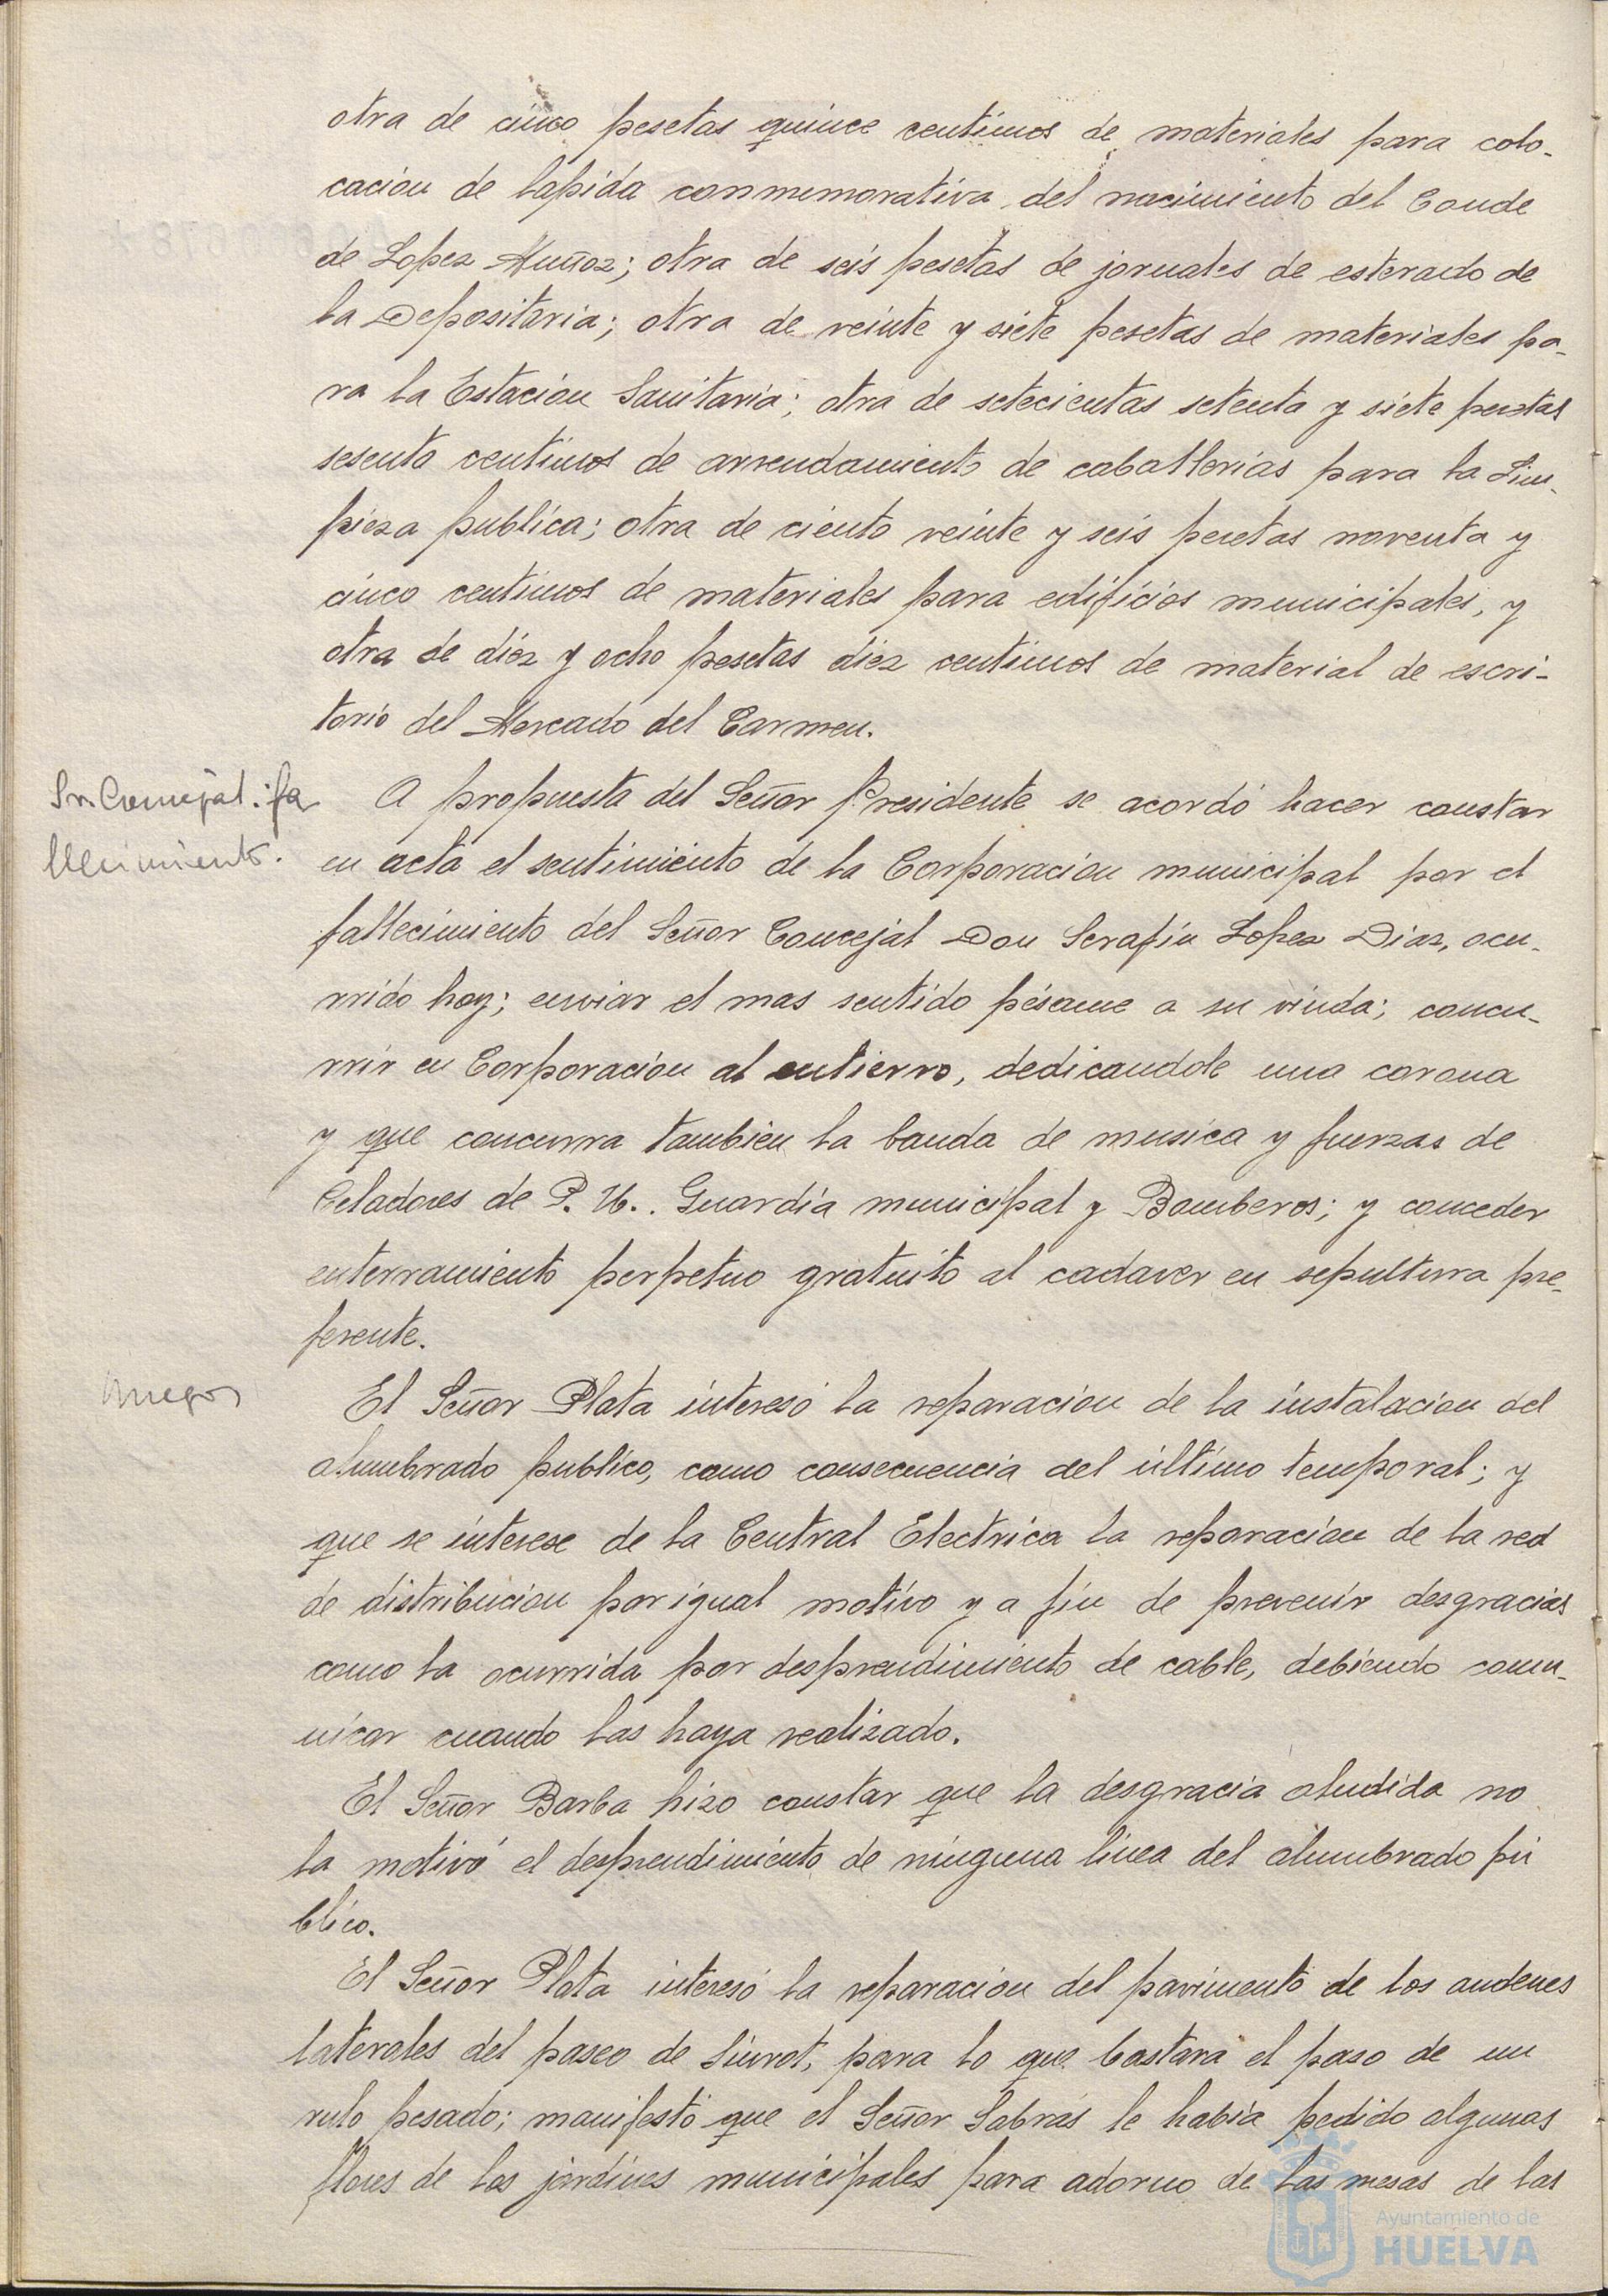 otra de cinco pesetas quince centimos de materiales para colo-
cacion de lapida conmemorativa del nacimiento del Conde
de Lopez Muñoz; otra de seis pesetas de jornales de esterado de
la Depositaria; otra de veinte y siete pesetas de materiales pa-
ra la Estación Sanitaria; otra de setecientas setenta y siete pesetas
sesenta centimos de arrendamiento de caballerias para la Lim-
pieza publica; otra de ciento veinte y seis pesetas noventa y
cinco centimos de materiales para edificios municipales, y
otra de diez y ocho pesetas diez centimos de material de escri-
torio del Mercado del Carmen.
Sr. Concejal: fa
llecimiento.
A propuesta del Señor Presidente se acordó hacer constar
en acta el sentimiento de la Corporacion municipal por el
fallecimiento del Señor Concejal Don Serafin Lopez Diaz, ocu-
rrido hoy; enviar el mas sentido pésame a su viuda; concu-
rrir en Corporación al entierro, dedicandole una corona
y que concurra tambien la banda de musica y fuerzas de
Celadores de P. U.. Guardia municipal y Bomberos; y conceder
enterramiento perpetuo gratuito al cadaver en sepultura pre-
ferente.
Ruegos
El Señor Plata interesó la reparacion de la instalacion del
alumbrado publico, como consecuencia del último temporal; y
que se interese de la Central Electrica la reparacion de la red
de distribucion por igual motivo y a fin de prevenir desgracias
como la ocurrida por desprendimiento de cable, debiendo comu-
nicar cuando las haya realizado.
El Señor Barba hizo constar que la desgracia aludida no
la motivó el desprendimiento de ninguna linea del alumbrado pú
blico.
El Señor Plata interesó la reparacion del pavimento de los andenes
laterales del paseo de Siurot, para lo que bastara el paso de un
rulo pesado; manifestó que el Señor Sabrás le habia pedido algunas
flores de los jardines municipales para adorno de las mesas de las
Ayuntamiento de
HUELVA